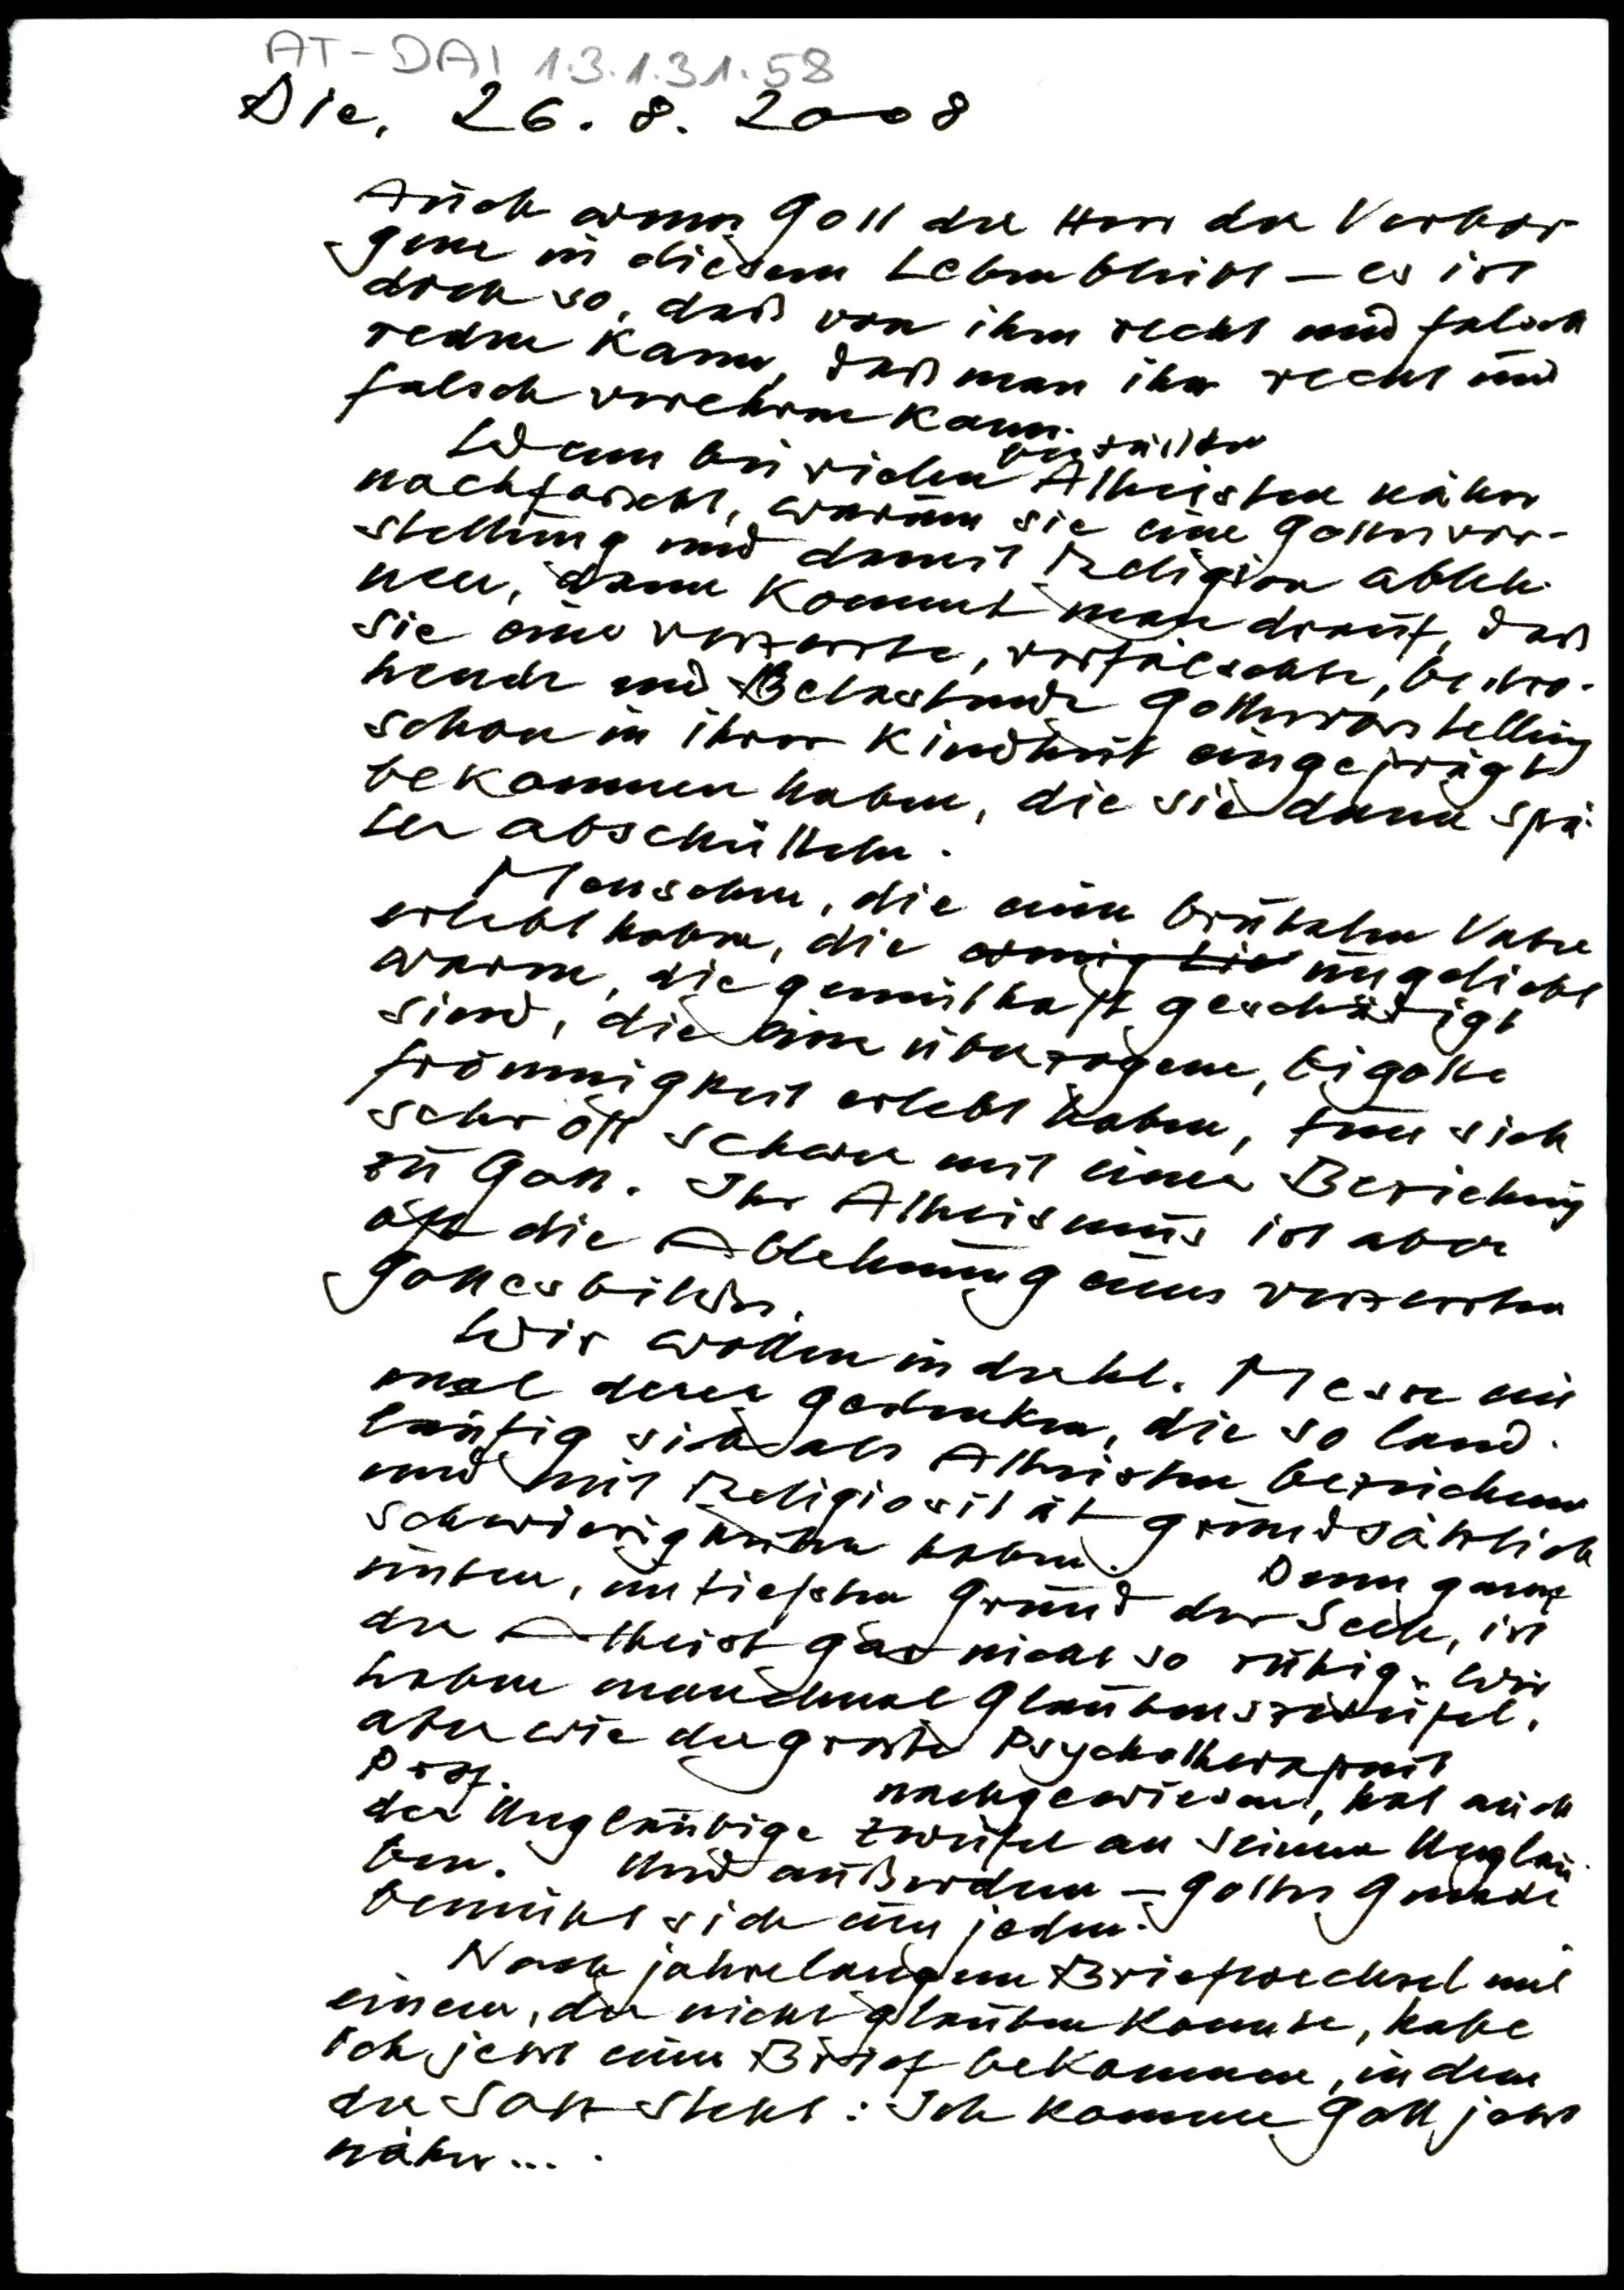 AT-DAI 1.3.1.31.58
Die, 26. 8. 2008
Auch wenn Gott der Herr der Verbor-
gene in diesem Leben bleibt - es ist
doch so, daß von ihm recht und falsch
reden kann, daß man ihn recht und
falsch verehren kann.
Wenn bei vielen
Atheisten näher
nachforscht, warum sie eine Gottesvor-
stellung und damit Religion ableh-
nen, dann kommt man drauf, daß
sie eine verzerrte, verfälschte, bedro-
hende und Belastende Gottesvorstellung
schon in ihrer Kindheit eingeprägt
bekommen haben, die sie dann spä-
ter abschütteln.
Menschen, die einen brutalen Vater
erlebt haben, die ungeliebt
waren, die gemüthaft geschädigt
sind, die eine überzogene, bigotte
frömmigkeit erlebt haben, tun sich
sehr oft schwer mit einer Beziehung
zu Gott. Ihr Atheismus ist aber
oft die Ablehnung eines verzerrten
Gottesbildes.
Wir wollen in der hl. Messe ein
mal derer gedenken, die so land-
läufig sich als Atheisten bezeichnen
und mit Religiosität grundsätzlich
schwierigkeiten haben. Denn ganz
unten, im tiefsten Grund der Seele, ist
der Atheist gar nicht so ruhig. Wir
haben manchmal Glaubenszweifel,
aber wie der große Psychotherapeut
Prof. nachgewiesen, hat auch
der Ungläubige Zweifel an seinem Unglau-
ben. Und außerdem - Gottes Gnade
bemüht sich um jeden.
Nach jahrelangem Briefwechsel mit
einem, der nicht glauben konnte, habe
ich jetzt einen Brief bekommen, in dem
der Satz steht: Ich komme Gott jetzt
näher....